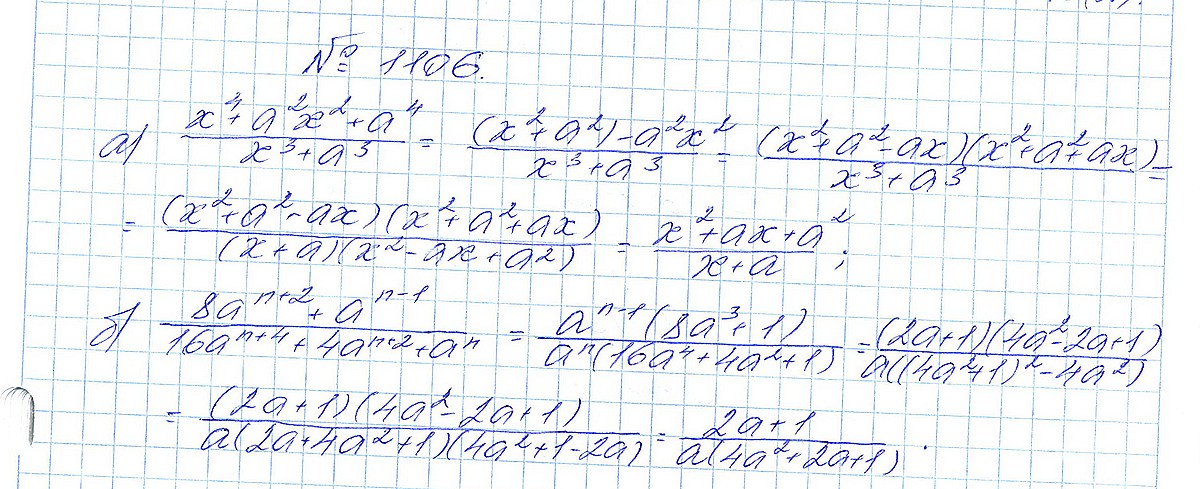 № 1106.
а) (x⁴ + a²x² + a⁴)/(x³ + a³) = ((x² + a²) - a²x²)/(x³ + a³) = ((x² + a² - ax)(x² + a² + ax))/(x³ + a³) =
= ((x² + a² - ax)(x² + a² + ax))/((x + a)(x² - ax + a²)) = (x² + ax + a²)/(x + a);
б) (8aⁿ⁺² + aⁿ⁻¹)/(16aⁿ⁺⁴ + 4aⁿ⁺² + aⁿ) = (aⁿ⁻¹(8a³ + 1))/(aⁿ(16a⁴ + 4a² + 1)) = ((2a + 1)(4a² - 2a + 1))/(a((4a² + 1)² - 4a²)
= ((2a + 1)(4a² - 2a + 1))/(a(2a + 4a² + 1)(4a² + 1 - 2a)) = (2a + 1)/(a(4a² + 2a + 1)).